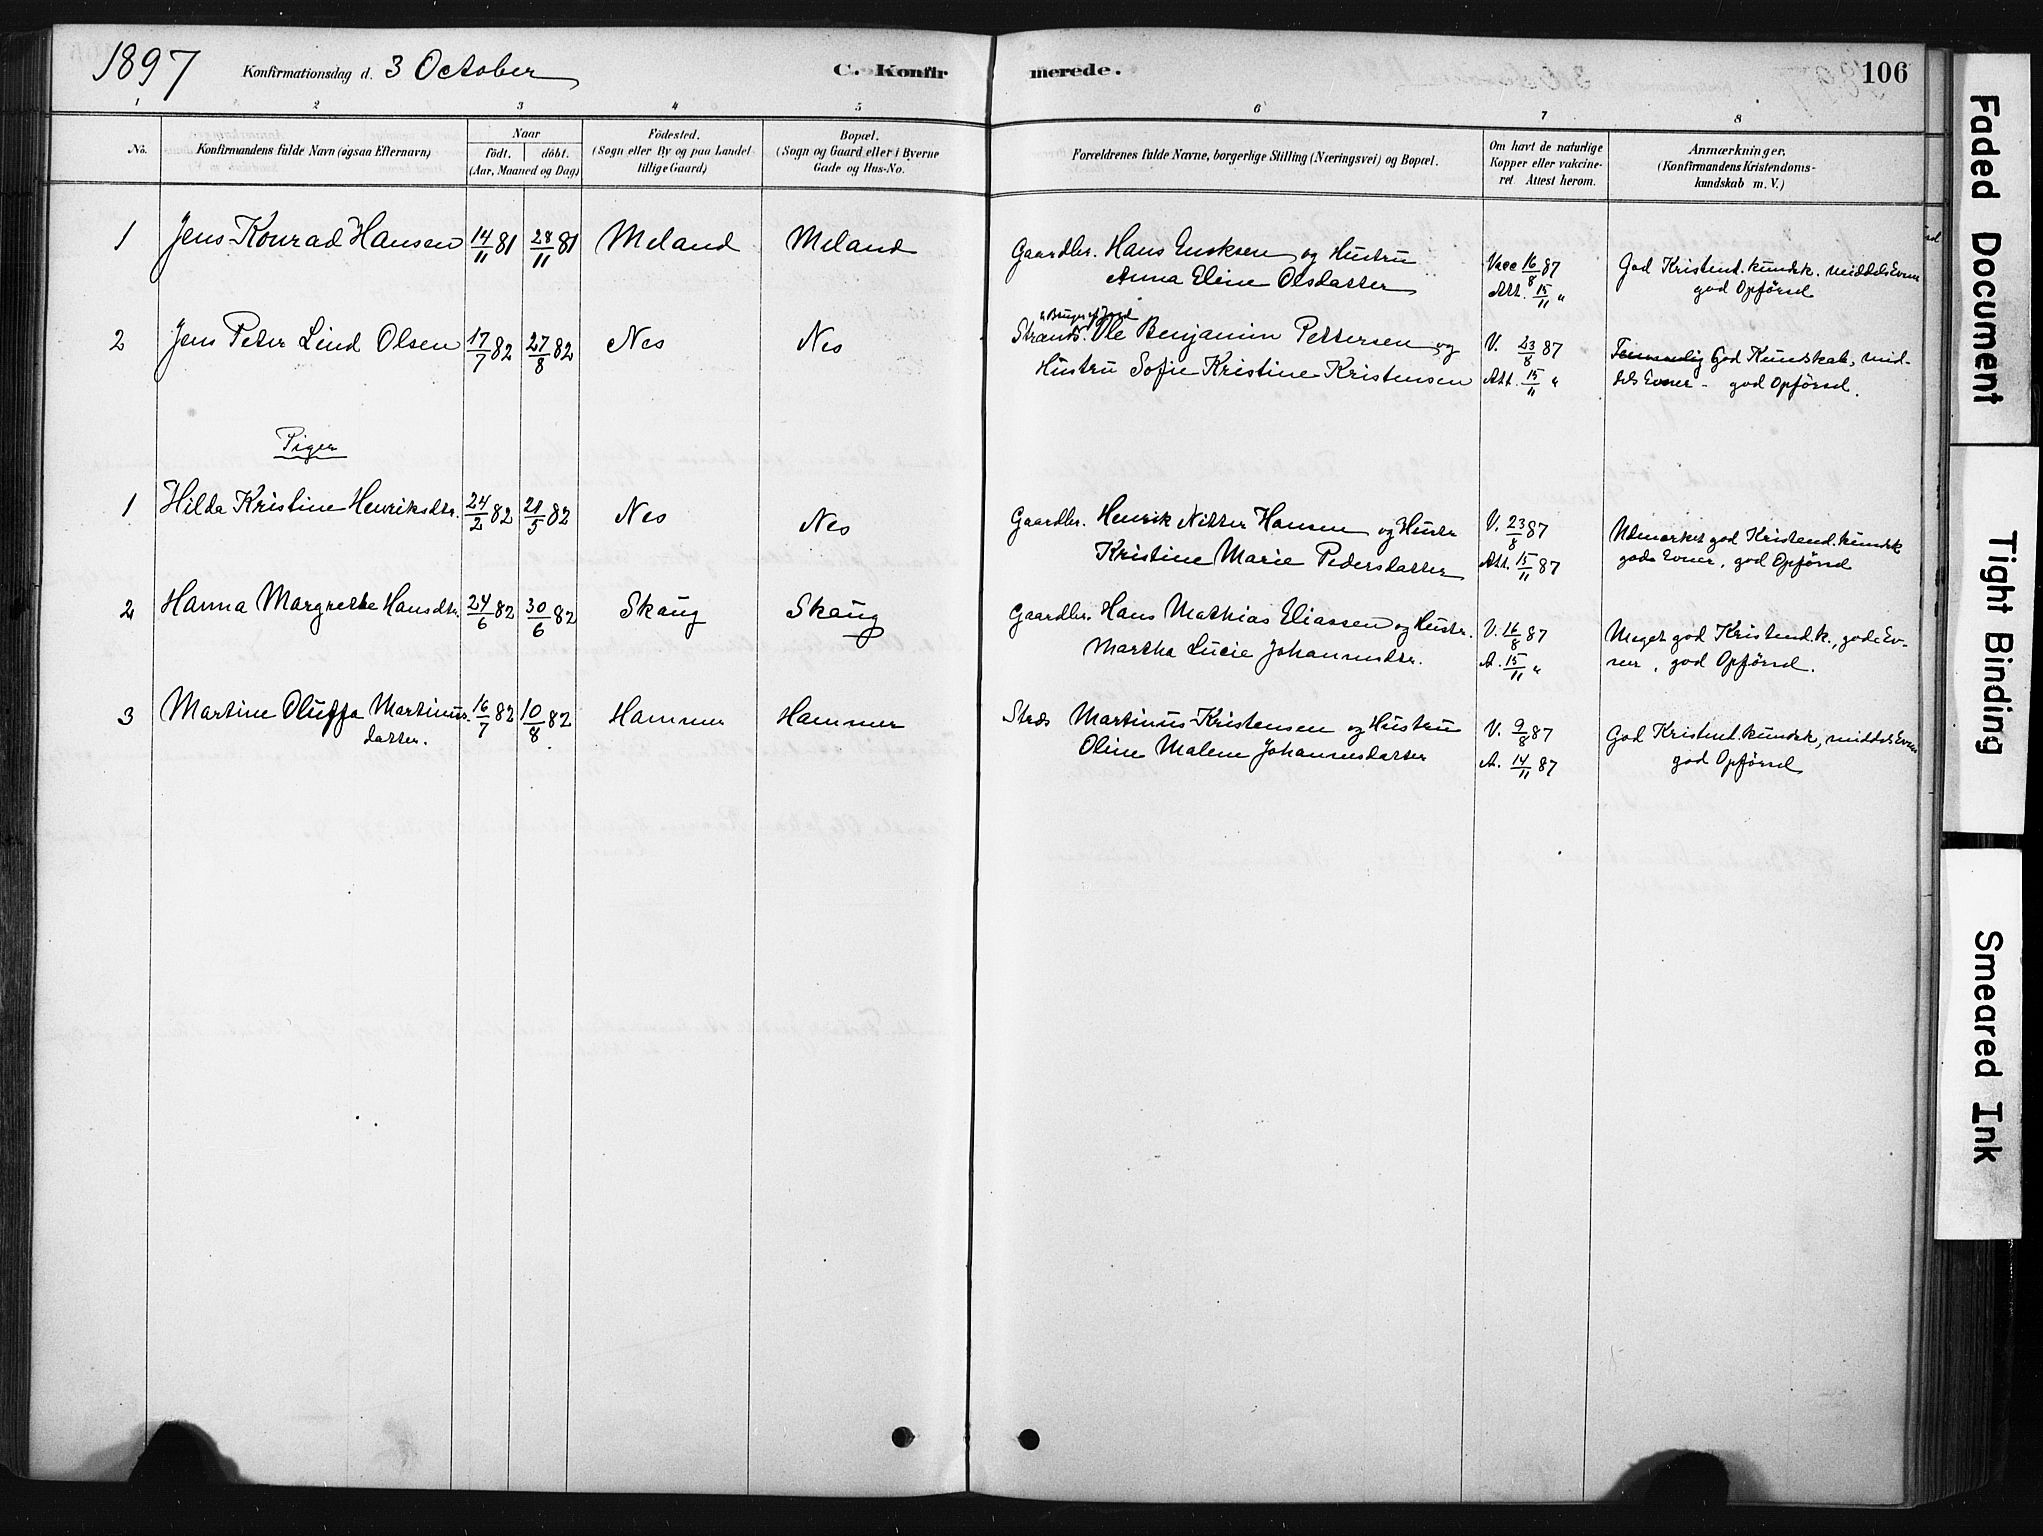 1897 Konfirmationsdag d. 3 October C. Konfirmerede. 106
1 2 3 4 5 6 7 8
No. Konfirmandens fulde Navn (ogsaa Efternavn)
Naar
født. døbt.
(Aar, Maaned og Dag)
Fødested.
(Sogn eller By og paa Landet
tillige Gaard)
Bopæl.
(Sogn og Gaard eller i Byerne
Gade og Hus-No.
Forældrenes fulde Navne, borgerlige Stilling (Næringsvei) og Bopæl.
Om havt de naturlige
Kopper eller vakcine-
ret Attest herom.
Anmærkninger,
(Konfirmandens Kristendoms-
kundskab m. V.)
1 Jens Konrad Hansen 14/11 81 28/11 81 Meland Meland
Gaardbr. Hans Enoksen og Hustru
Anna Eline Olsdatter
Vacc 16/8 87
Att. 15/11 "
God Kristent. kundsk. middels Evner
god Opførsel
2 Jens Peter Lind Olsen 17/7 82 27/8 82 Nes Nes
Brugr af Jord
Strands. Ole Benjamin Pettersen og
Hustru Sofie Kristine Kristensen
V. 23/8 87
Att. 15/11 "
Temmelig God Kundskab, mid-
dels Evner - god Opførsel.
Piger
1 Hilda Kristine Henriksdtr. 24/2 82 28/5 82 Nes Nes
Gaardbr. Henrik Nitter Hansen og Hustr
Kristine Marie Pedersdatter
V. 23/8 87
Att. 15/11 87
Udmærket god Kristend. kundsk
gode Evner, god Opførsel
2 Hanna Margrethe Hansdtr. 24/6 82 30/6 82 Skaug Skaug
Gaardbr. Hans Mathias Eliassen og Hustr.
Martha Lucie Johannesdtr.
V. 16/8 87
A. 15/11 "
Meget god Kristend.k., gode Ev-
ner, god Opførsel.
3 Martine Oluffa Martinus- 16/7 82 10/8 82 Hammer Hammer
datter.
Strds Martinus Kristensen og Hustru
Oline Malene Johannesdatter
V. 9/8 87
A. 14/11 87
God Kristent. kundsk, middels Evner
god Opførsel
Faded Document
Tight Binding
Smeared Ink